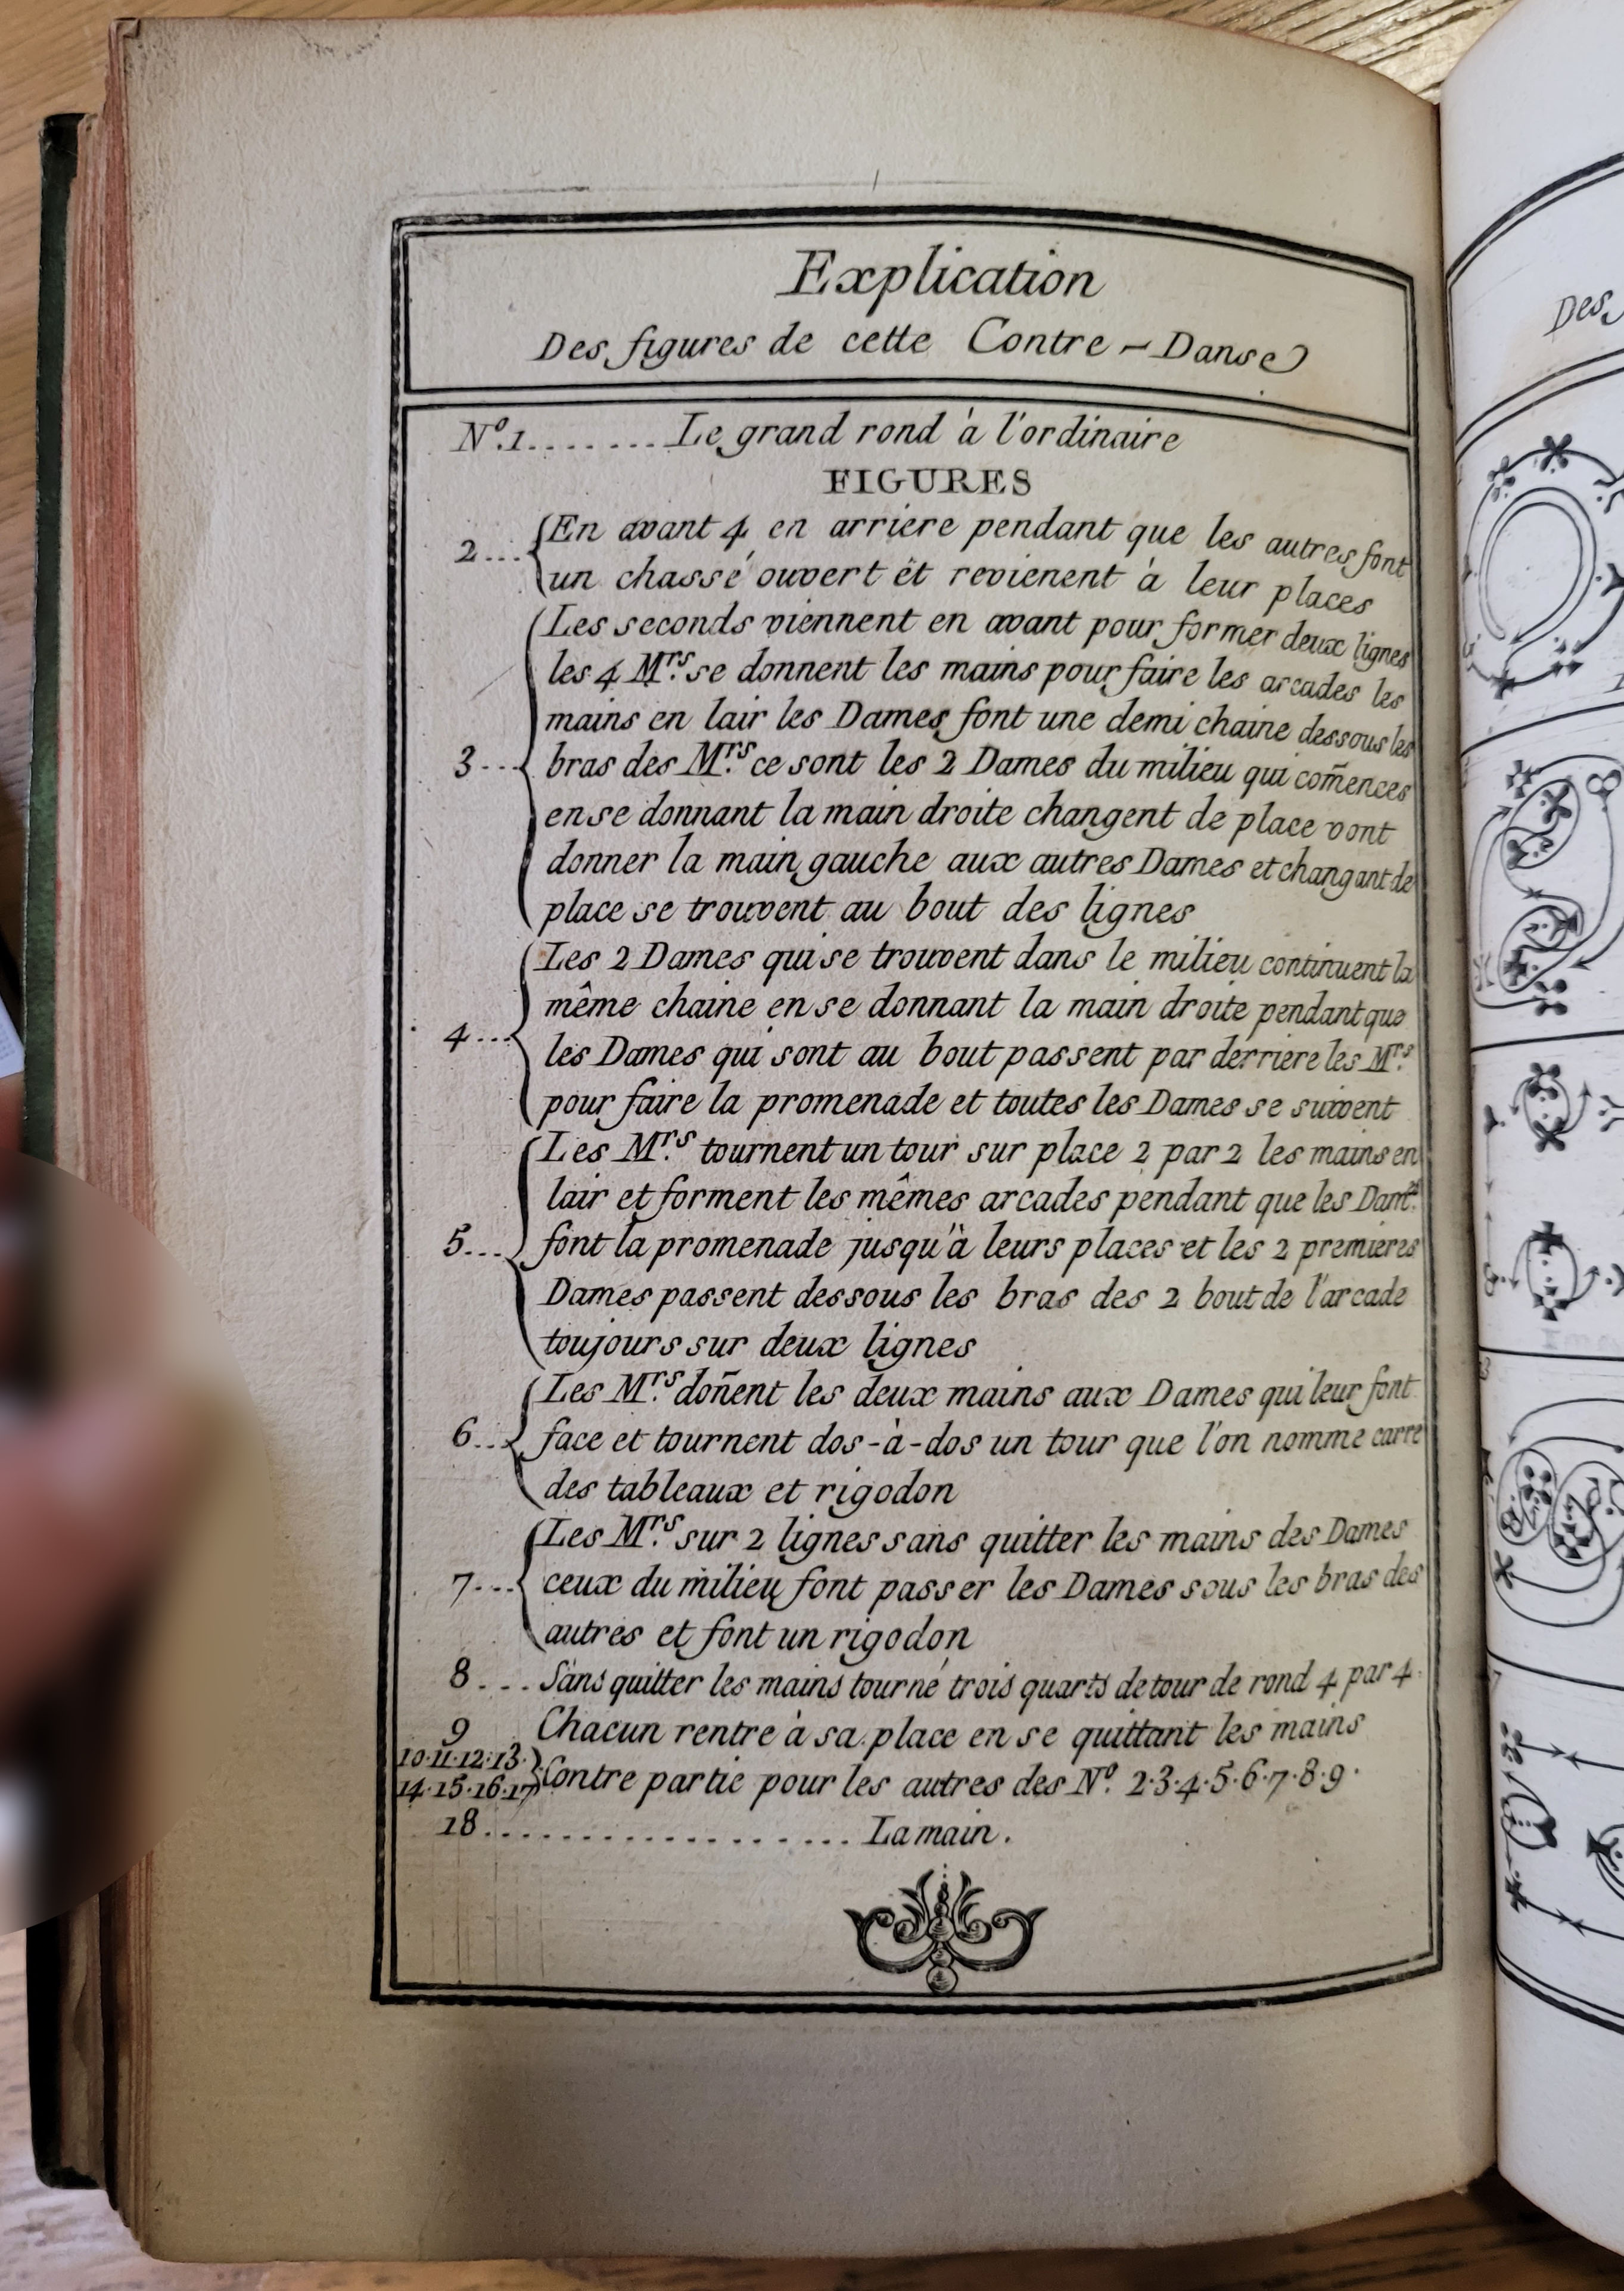 Explication
Des figures de cette Contre-Danse
N.º 1....... Le grand rond à l'ordinaire
FIGURES
2... En avant 4, en arriere pendant que les autres font
un chassé ouvert ét revienent à leur places
Les seconds viennent en avant pour former deux lignes
les 4 M.rs se donnent les mains pour faire les arcades les
mains en lair les Dames font une demi chaine dessous les
3... bras des M.rs ce sont les 2 Dames du milieu qui com̃ences
en se donnant la main droite changent de place vont
donner la main gauche aux autres Dames et changant de
place se trouvent au bout des lignes
Les 2 Dames qui se trouvent dans le milieu continuent la
même chaine en se donnant la main droite pendant que
4... les Dames qui sont au bout passent par derriere les M.rs
pour faire la promenade et toutes les Dames se suivent
Les M.rs tournent un tour sur place 2 par 2 les mains en
lair et forment les mêmes arcades pendant que les Dam.es
5... font la promenade jusqu'à leurs places et les 2 premieres
Dames passent dessous les bras des 2 bout de l'arcade
toujours sur deux lignes
Les M.rs doñent les deux mains aux Dames qui leur font
6... face et tournent dos-à-dos un tour que l'on nomme carre
des tableaux et rigodon
Les M.rs sur 2 lignes sans quitter les mains des Dames
7... ceux du milieu font passer les Dames sous les bras des
autres et font un rigodon
8... Sans quitter les mains tourné trois quarts de tour de rond 4 par 4.
9 Chacun rentre à sa place en se quittant les mains
10·11·12·13·
14·15·16·17 Contre partie pour les autres des N.º 2·3·4·5·6·7·8·9·
18................... La main.
Des